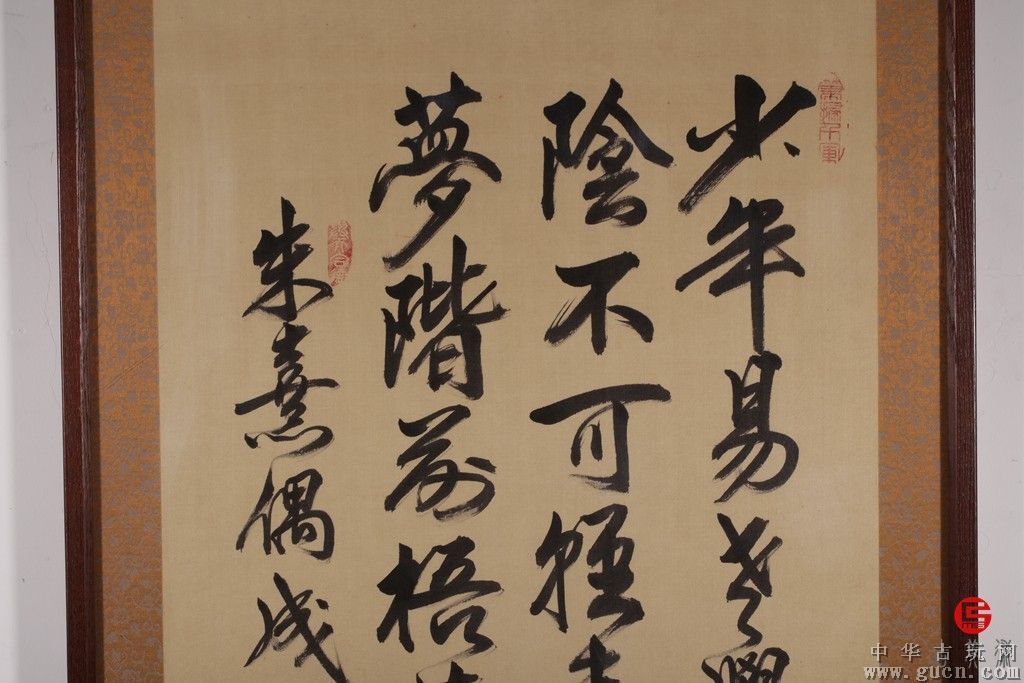 少年易老學
陰不可輕未
夢階前梧
朱熹偶成
中华古玩网
www.gucn.com